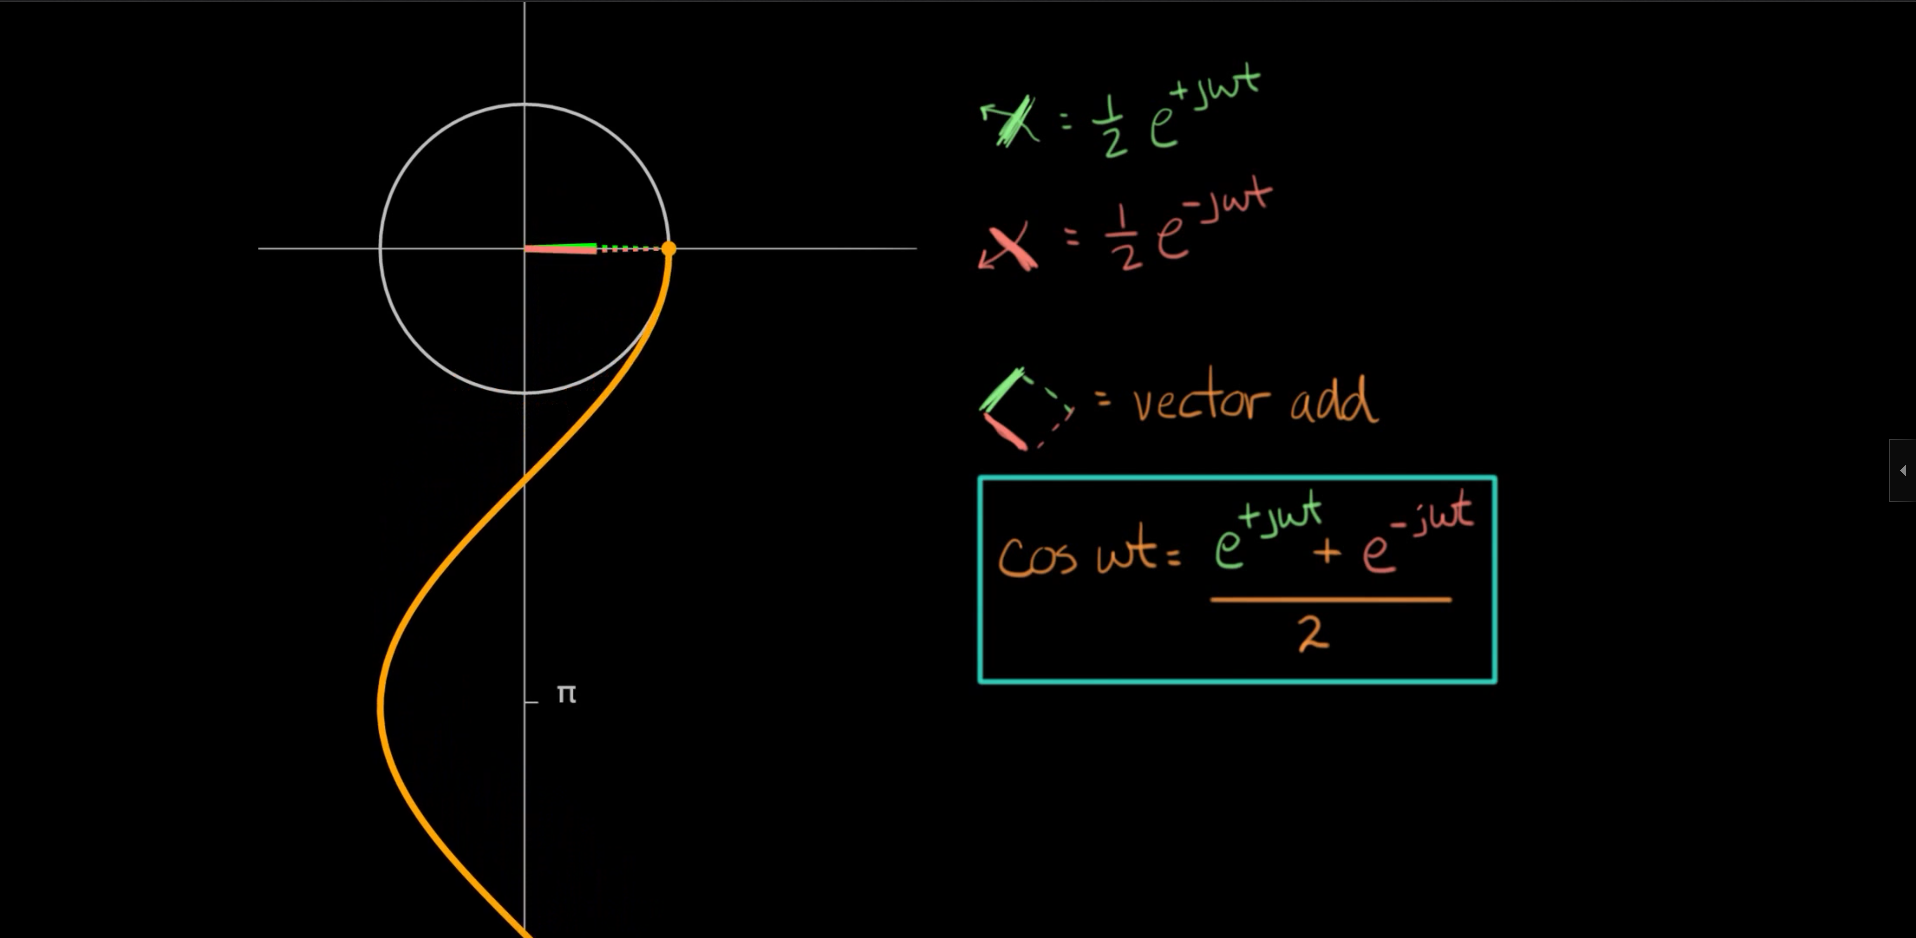 = 1/2 e^+jwt
= 1/2 e^-jwt
= vector add
cos wt = (e^+jwt + e^-jwt) / 2
π